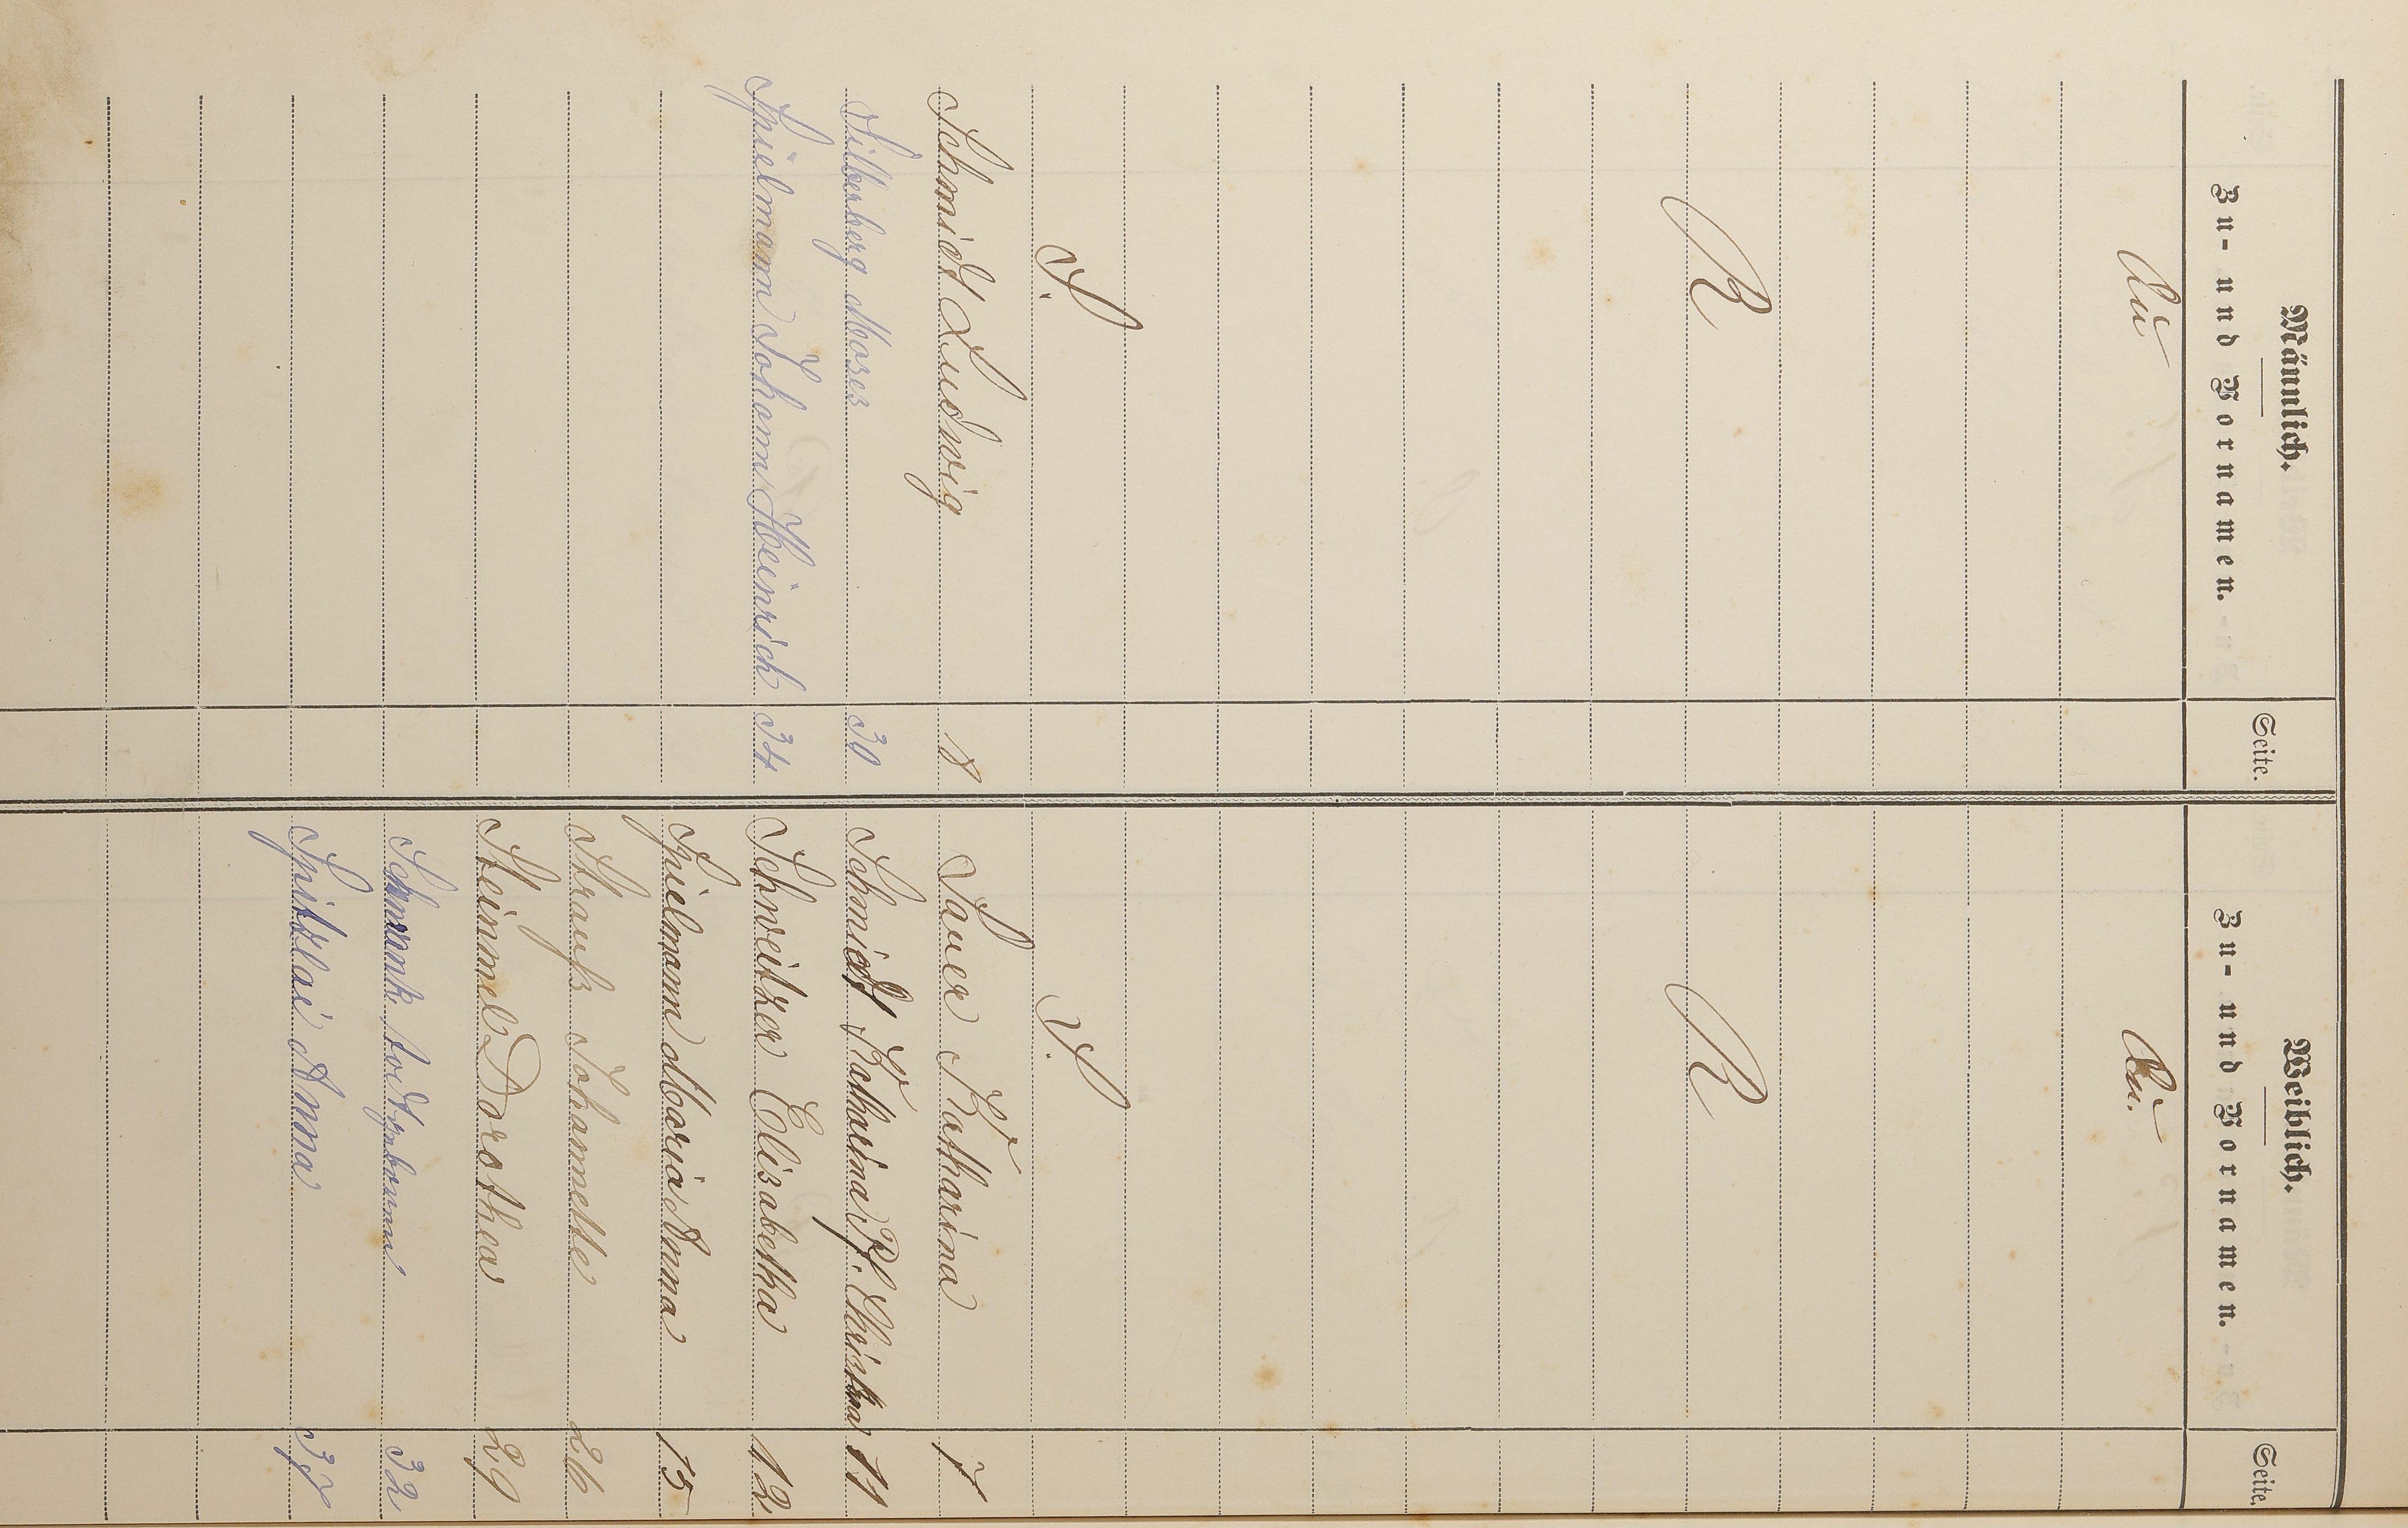 Männlich.
Zu- und Vornamen.
Seite.
Qu
R
S.
Schmidt Ludwig 8
Silberberg Moses 30
Spielmann Johann Heinrich 34
Weiblich.
Zu- und Vornamen.
Seite.
Qu.
R
S.
Sauer Katharina 7
Schmidt Katharina Ph. Christina 11
Schweitzer Elisabetha 12
Spielmann Maria Anna 15
Strauß Johannette 26
Steinmel Dorothea 29
Schrank, todtgeboren 32
Spitzlai Anna 37